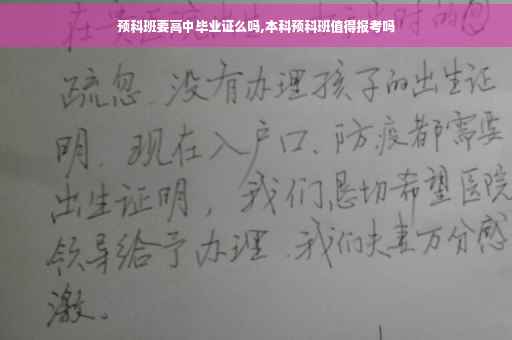 预科班要高中毕业证么吗,本科预科班值得报考吗
疏忽、没有办理孩子的出生证
明、现在入户口、防疫都需要
出生证明，我们恳切希望医院
领导给予办理、我们夫妻万分感
激。